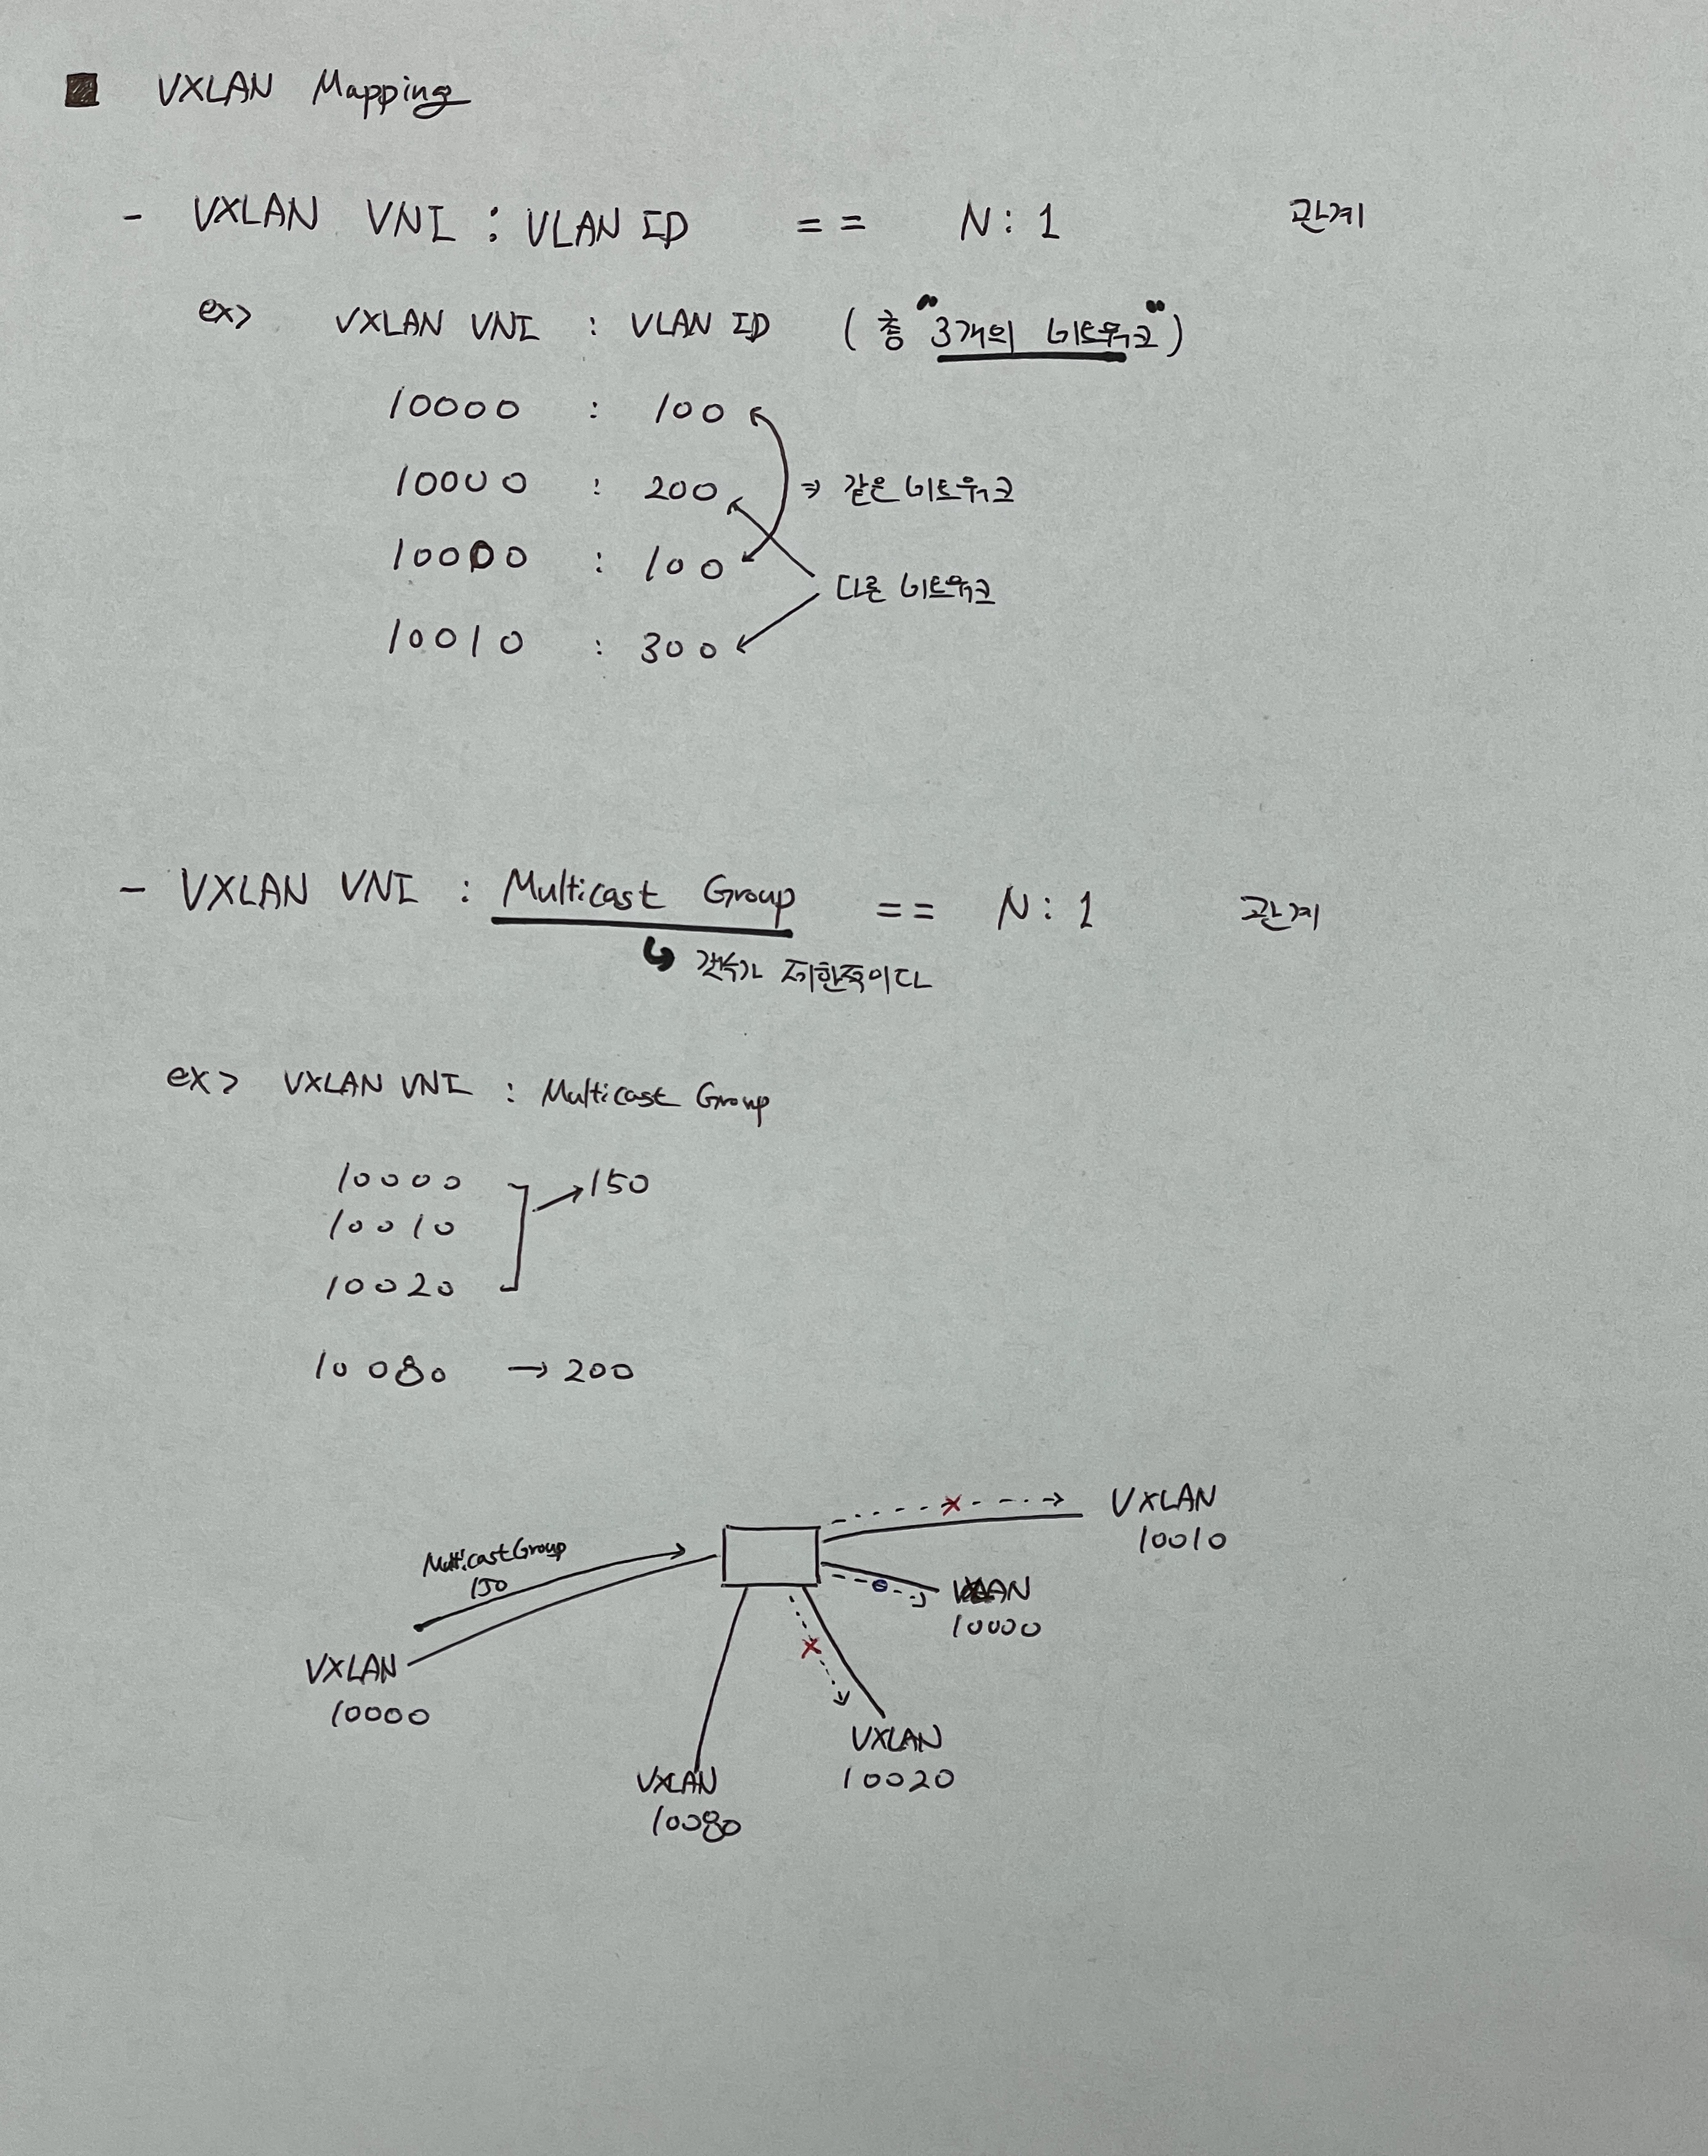 ■ VXLAN Mapping
- VXLAN VNI : VLAN ID == N : 1 관계
ex> VXLAN VNI : VLAN ID (총 "3개의 네트워크")
10000 : 100
10000 : 200 ⇒ 같은 네트워크
10000 : 100
다른 네트워크
10010 : 300
- VXLAN VNI : Multicast Group == N : 1 관계
↳ 갯수가 제한적이다
ex> VXLAN VNI : Multicast Group
10000 → 150
10010
10020
10080 → 200
VXLAN
10010
Multicast Group
150
VXLAN
10000
VXLAN
10000
VXLAN
10020
VXLAN
10080